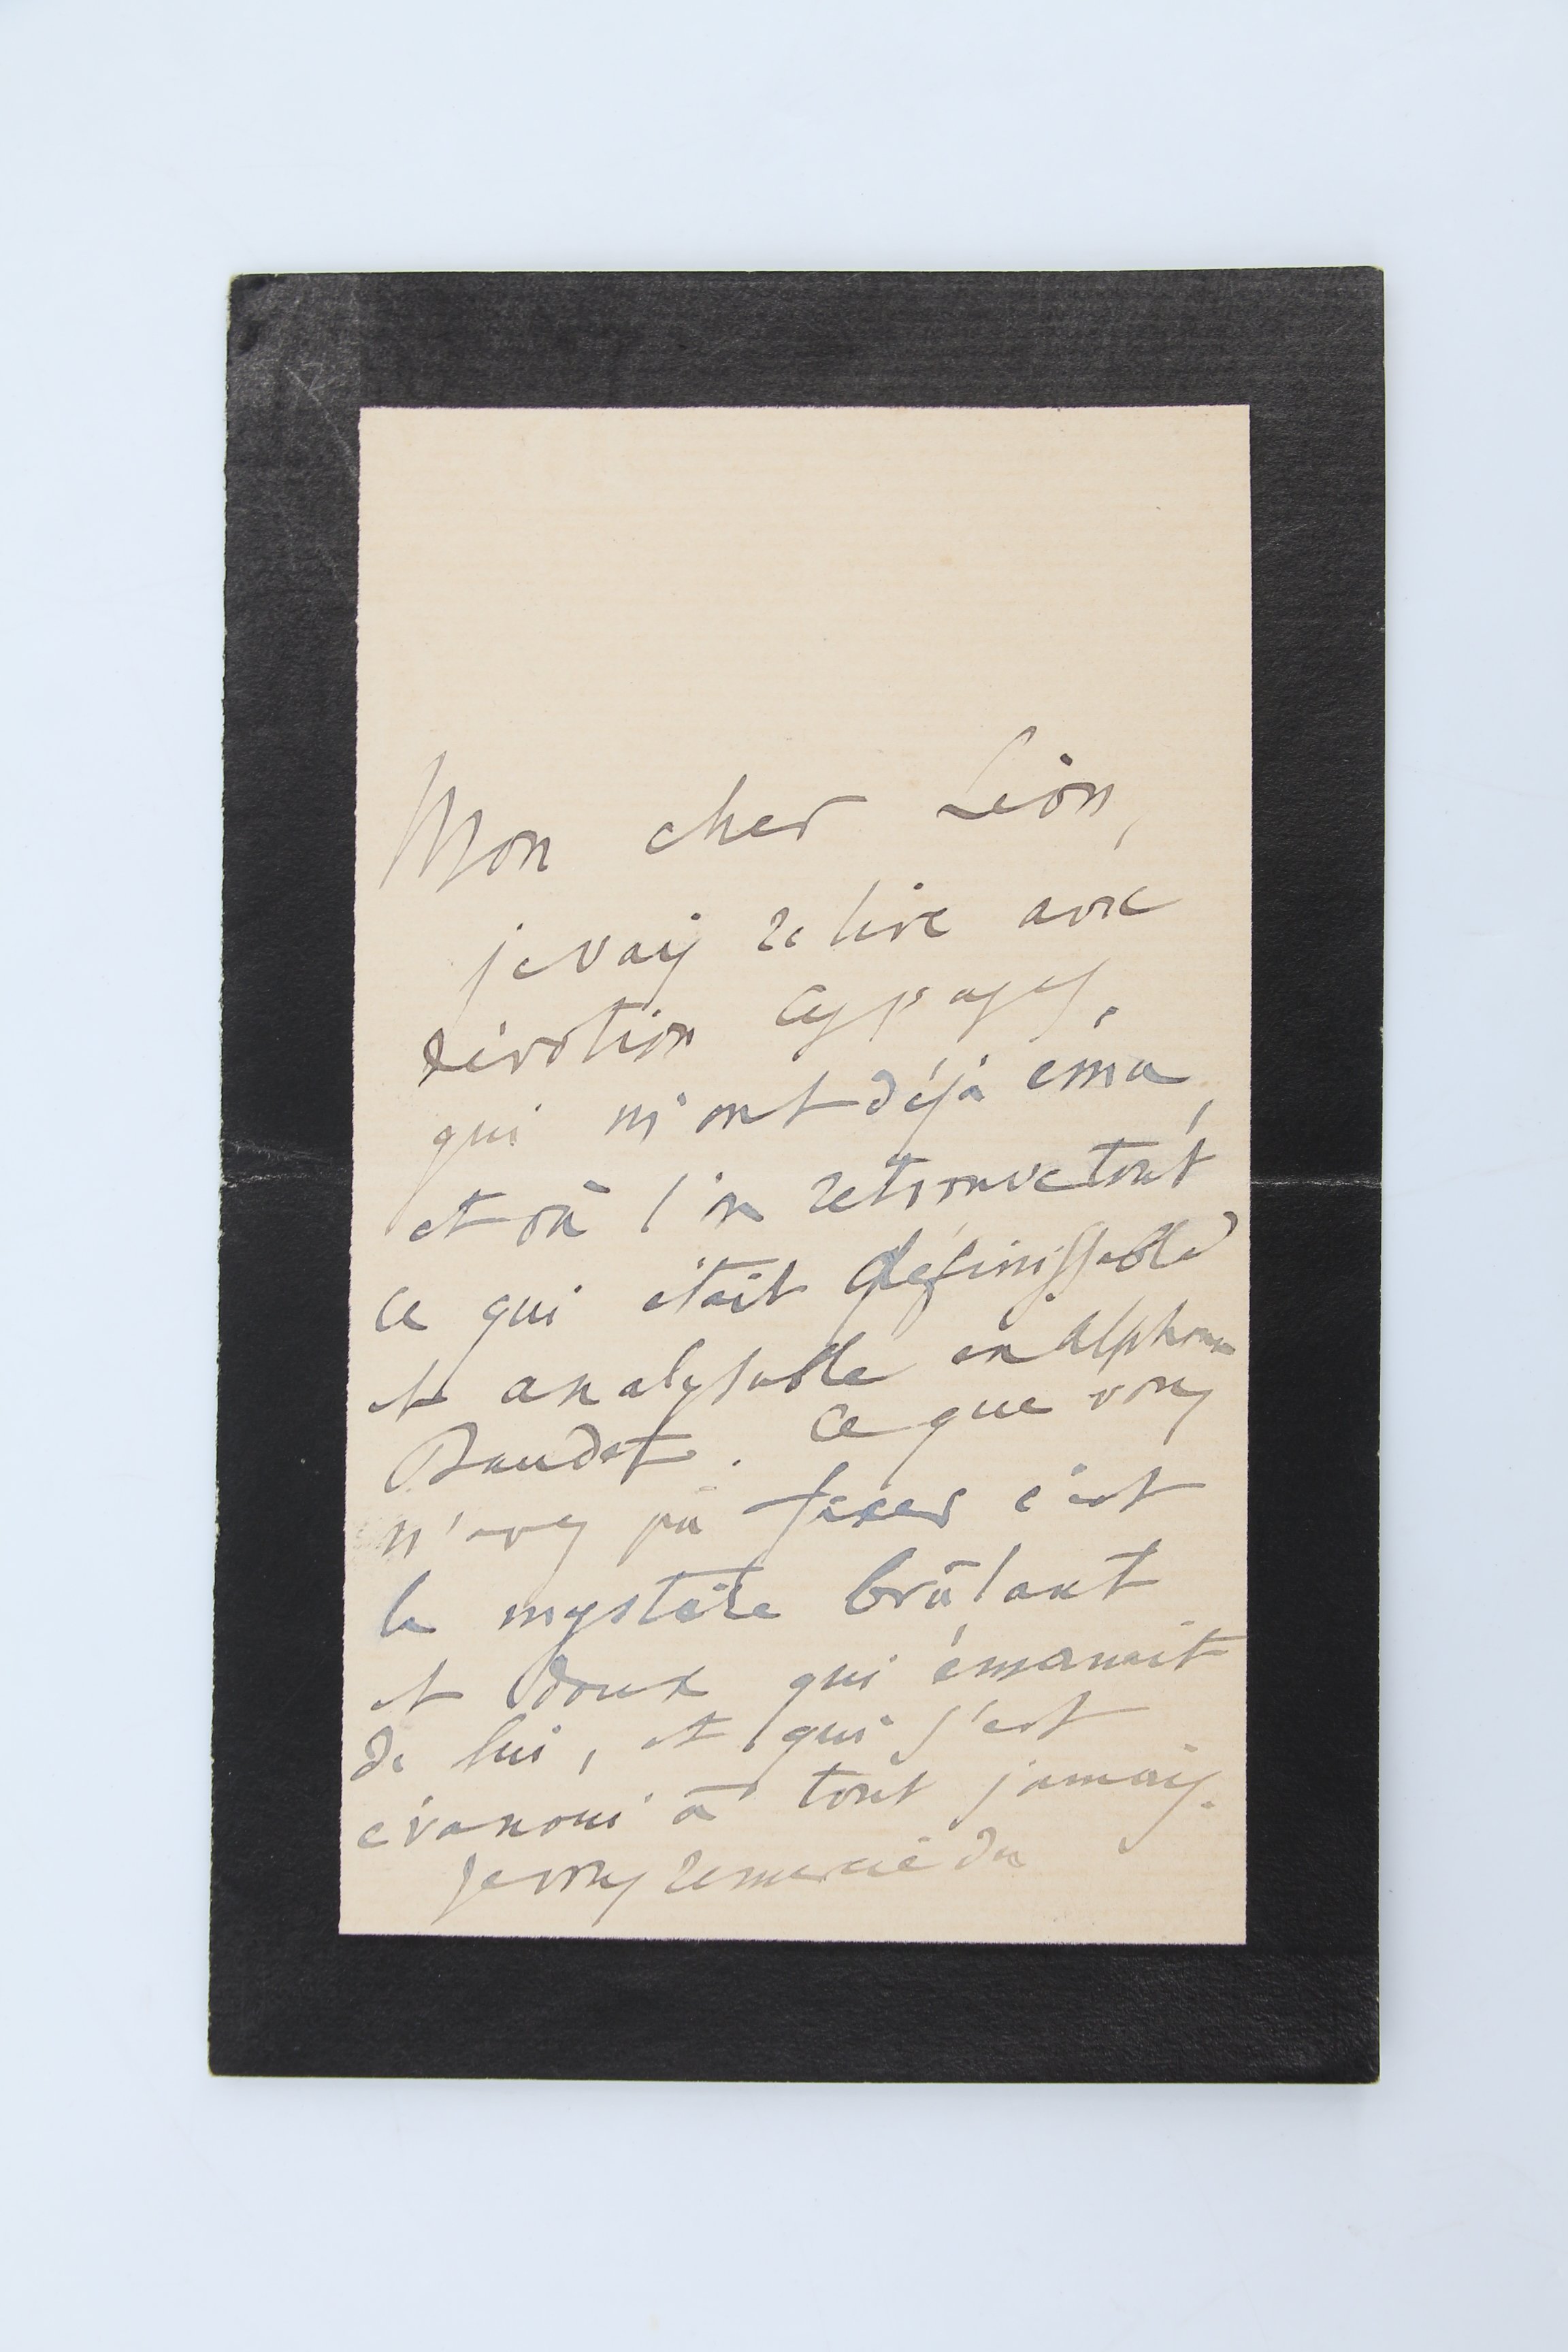 Mon cher Léon,
je vais relire avec
dévotion ces pages,
qui m'ont déjà ému,
et où l'on retrouve tout
ce qui était définissable
et analysable en Alphonse
Daudet. Ce que vous
n'avez pû fixer c'est
le mystère brûlant
et doux qui émanait
de lui, et qui s'est
évanoui à tout jamais.
Je vous remercie du